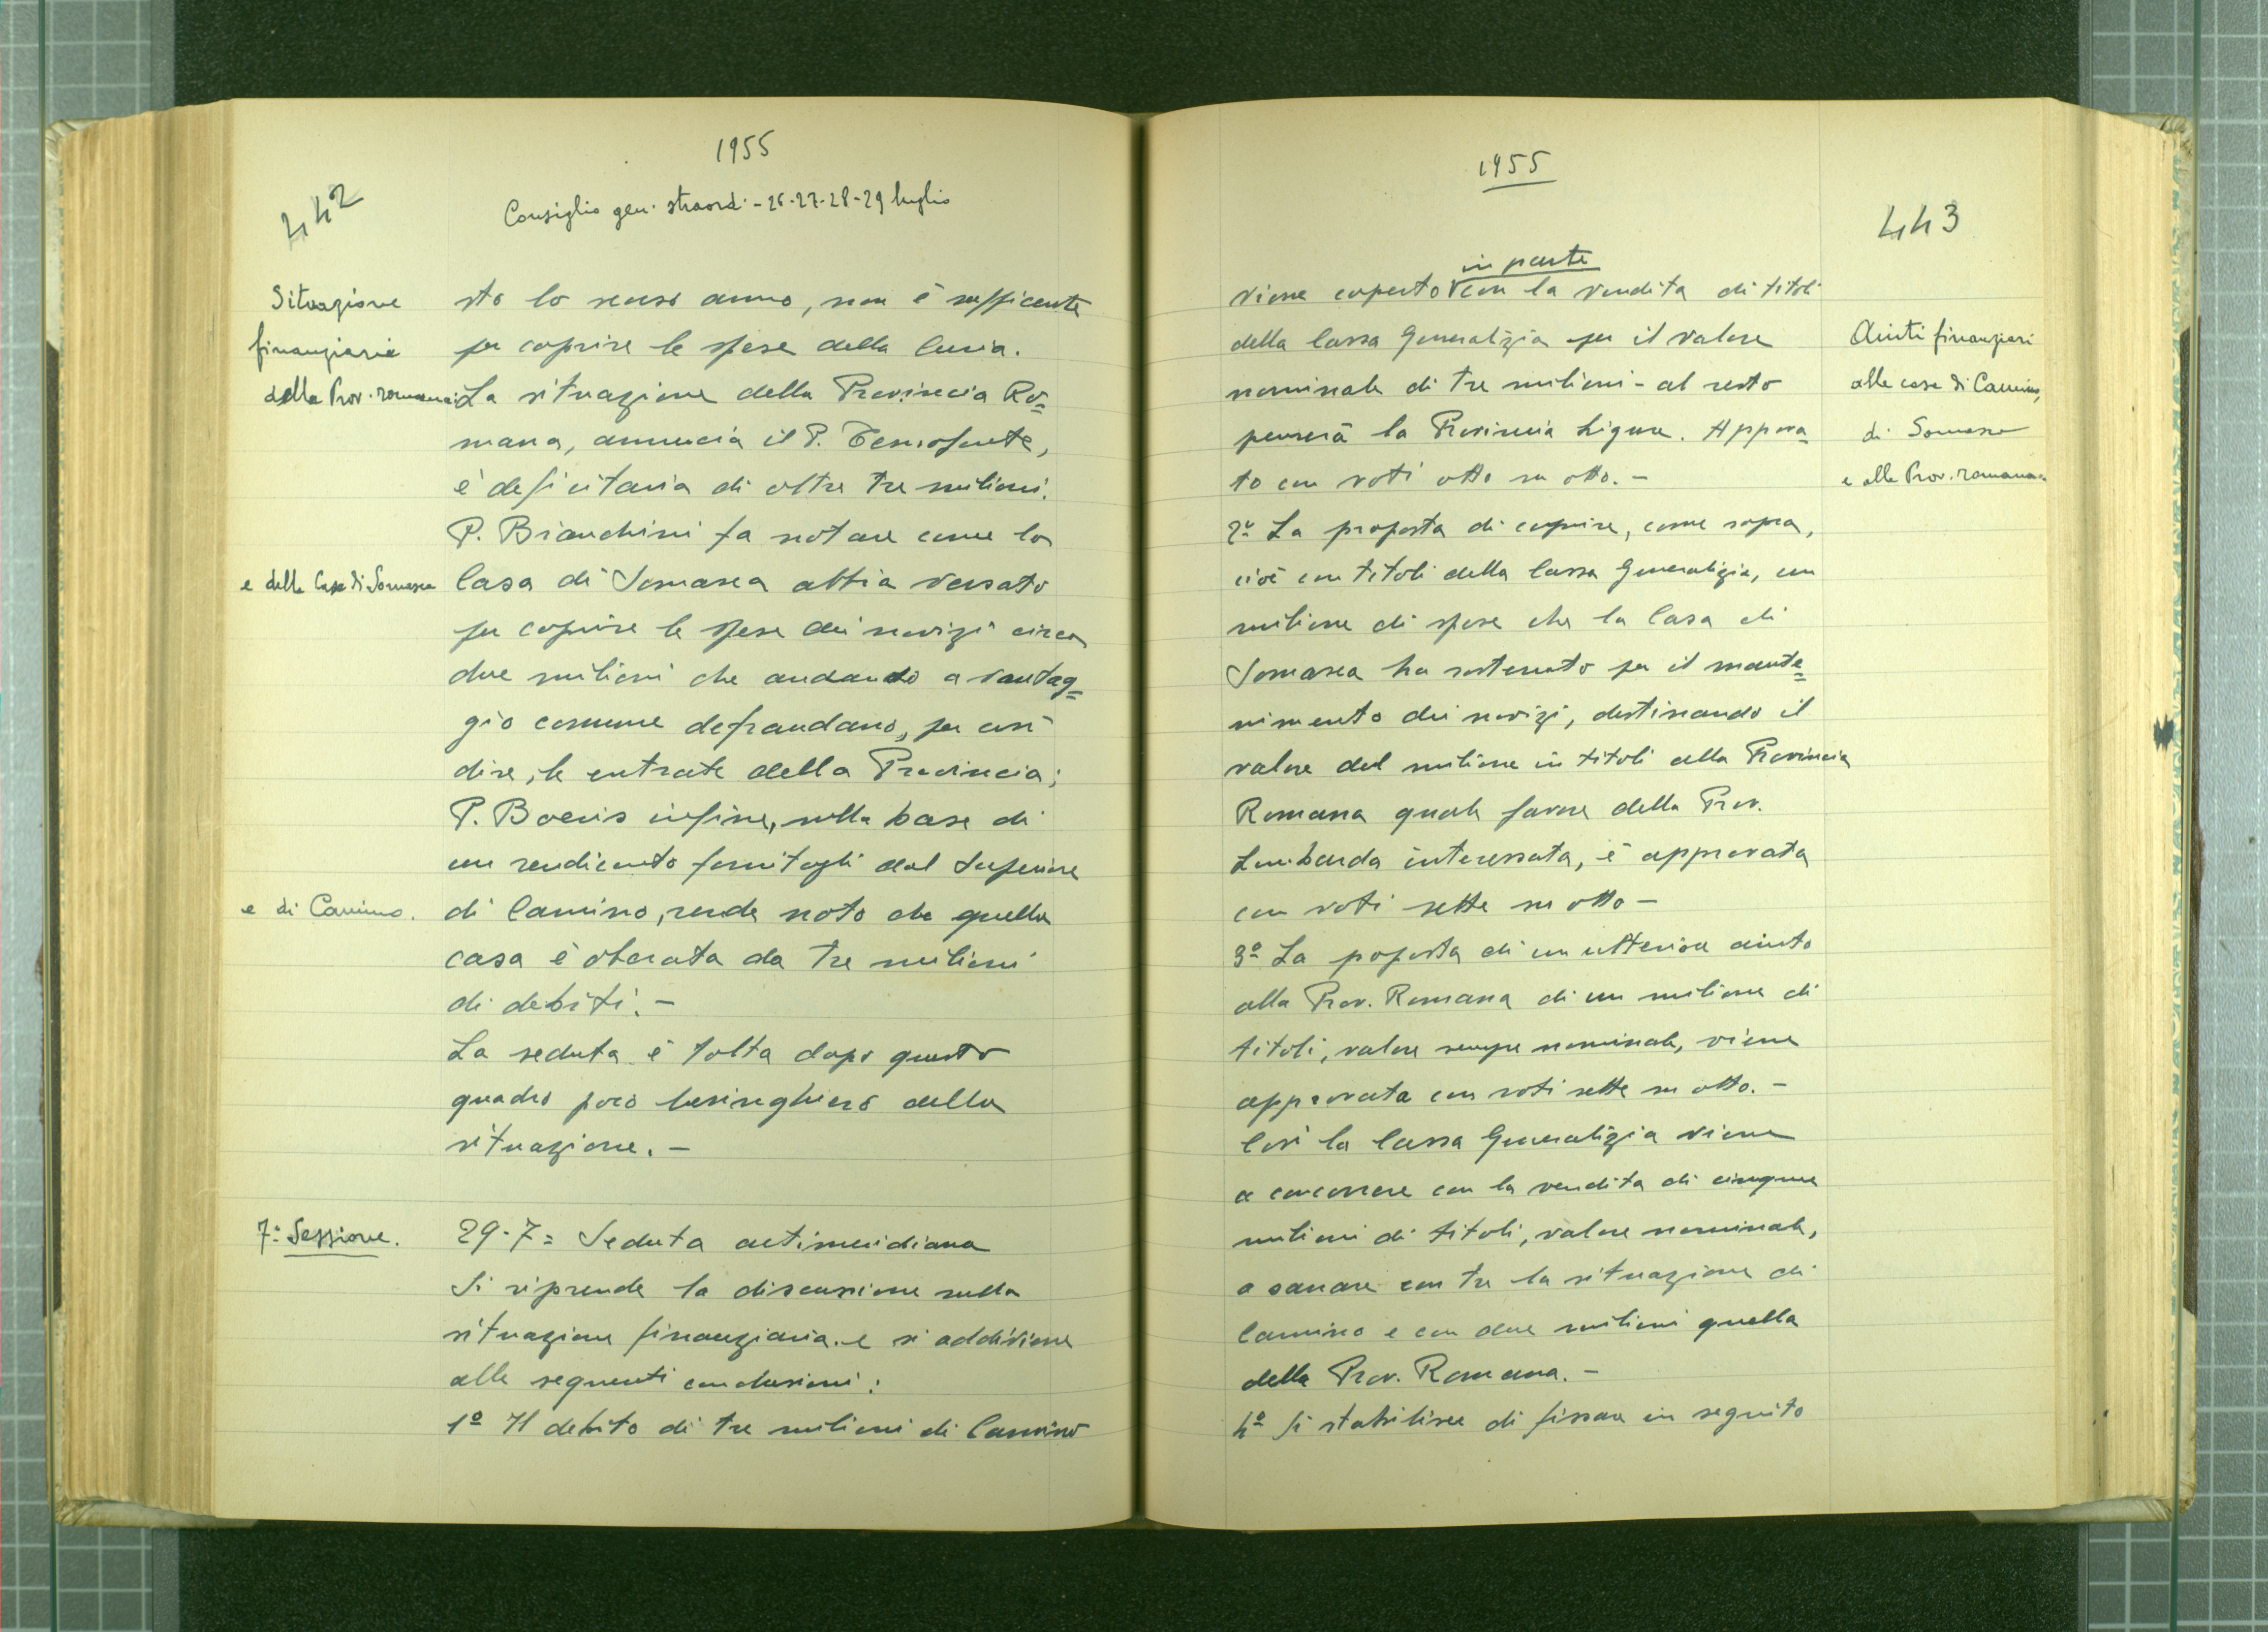 1955
442
Consiglio gen. straord. - 26-27-28-29 luglio
Situazione
finanziaria
della Prov. romana
e della Casa di Somasca
e di Camino.
7ª Sessione.
sto lo scorso anno, non è sufficente
per coprire le spese della Curia.
La situazione della Provincia Ro=
mana, annuncia il P.
è deficitaria di oltre tre milioni.
P. Bianchini fa notare come la
Casa di Somasca abbia versato
per coprire le spese dei novizi circa
due milioni che andando a vantag=
gio comune defraudano, per così
dire, le entrate della Provincia;
P. Boeris infine, sulla base di
un rendiconto fornitogli dal Superiore
di Camino, rende noto che quella
casa è oberata da tre milioni
di debiti. -
La seduta è tolta dopo questo
quadro poco lusinghiero della
situazione. -
29-7= Seduta antimeridiana
Si riprende la discussione sulla
situazione finanziaria e si addiviene
alle seguenti conclusioni:
1º Il debito di tre milioni di Camino
1955
443
in parte
viene coperto con la vendita di titoli
della Cassa Generalizia per il valore
nominale di tre milioni - al resto
penserà la Provincia Ligure. Approva=
to con voti otto su otto. -
2º La proposta di coprire, come sopra,
cioè con titoli della Cassa Generalizia, un
milione di spese che la Casa di
Somasca ha sostenuto per il mante=
nimento dei novizi, destinando il
valore del milione in titoli alla Provincia
Romana quale favore della Prov.
Lombarda interessata, è approvata
con voti sette su otto -
3º La poposta di un ulteriore aiuto
alla Prov. Romana di un milione di
titoli, valore sempre nominale, viene
approvata con voti sette su otto. -
Così la Cassa Generalizia viene
a concorrere con la vendita di cinque
milioni di titoli, valore nominale,
a sanare con tre la situazione di
Camino e con due milioni quella
della Prov. Romana. -
4º Si stabilisce di fissare in seguito
Aiuti finanziari
alle case di Camino,
di Somasca
e alla Prov. romana.